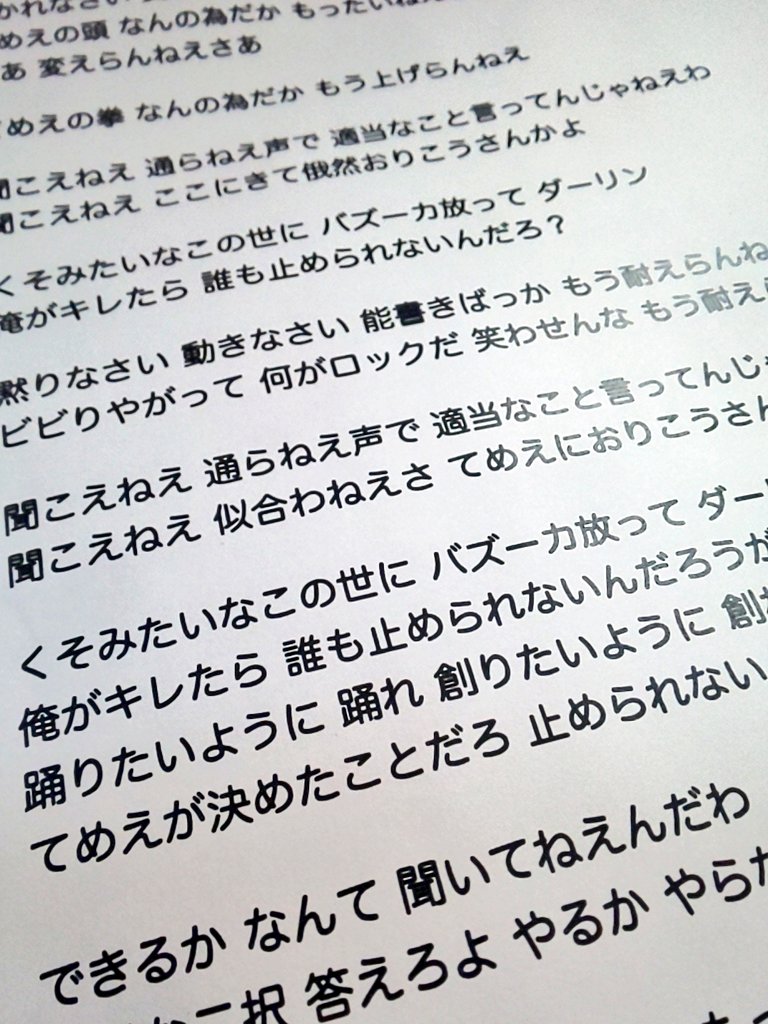 かれなさい
めえの頭 なんの為だか もったいねえ
あ 変えらんねえさあ
てめえの拳 なんの為だか もう上げらんねえ
聞こえねえ 通らねえ声で 適当なこと言ってんじゃねえわ
聞こえねえ ここにきて俄然おりこうさんかよ
くそみたいなこの世に バズーカ放って ダーリン
俺がキレたら 誰も止められないんだろ?
黙りなさい 動きなさい 能書きばっか もう耐えらんね
ビビりやがって 何がロックだ 笑わせんな もう耐え
聞こえねえ 通らねえ声で 適当なこと言ってんじ
聞こえねえ 似合わねえさ てめえにおりこうさん
くそみたいなこの世に バズーカ放って ダー
俺がキレたら 誰も止められないんだろうが
踊りたいように 踊れ 創りたいように 創れ
てめえが決めたことだろ 止められない
できるか なんて 聞いてねえんだわ
か 二択 答えろよ やるか やらな